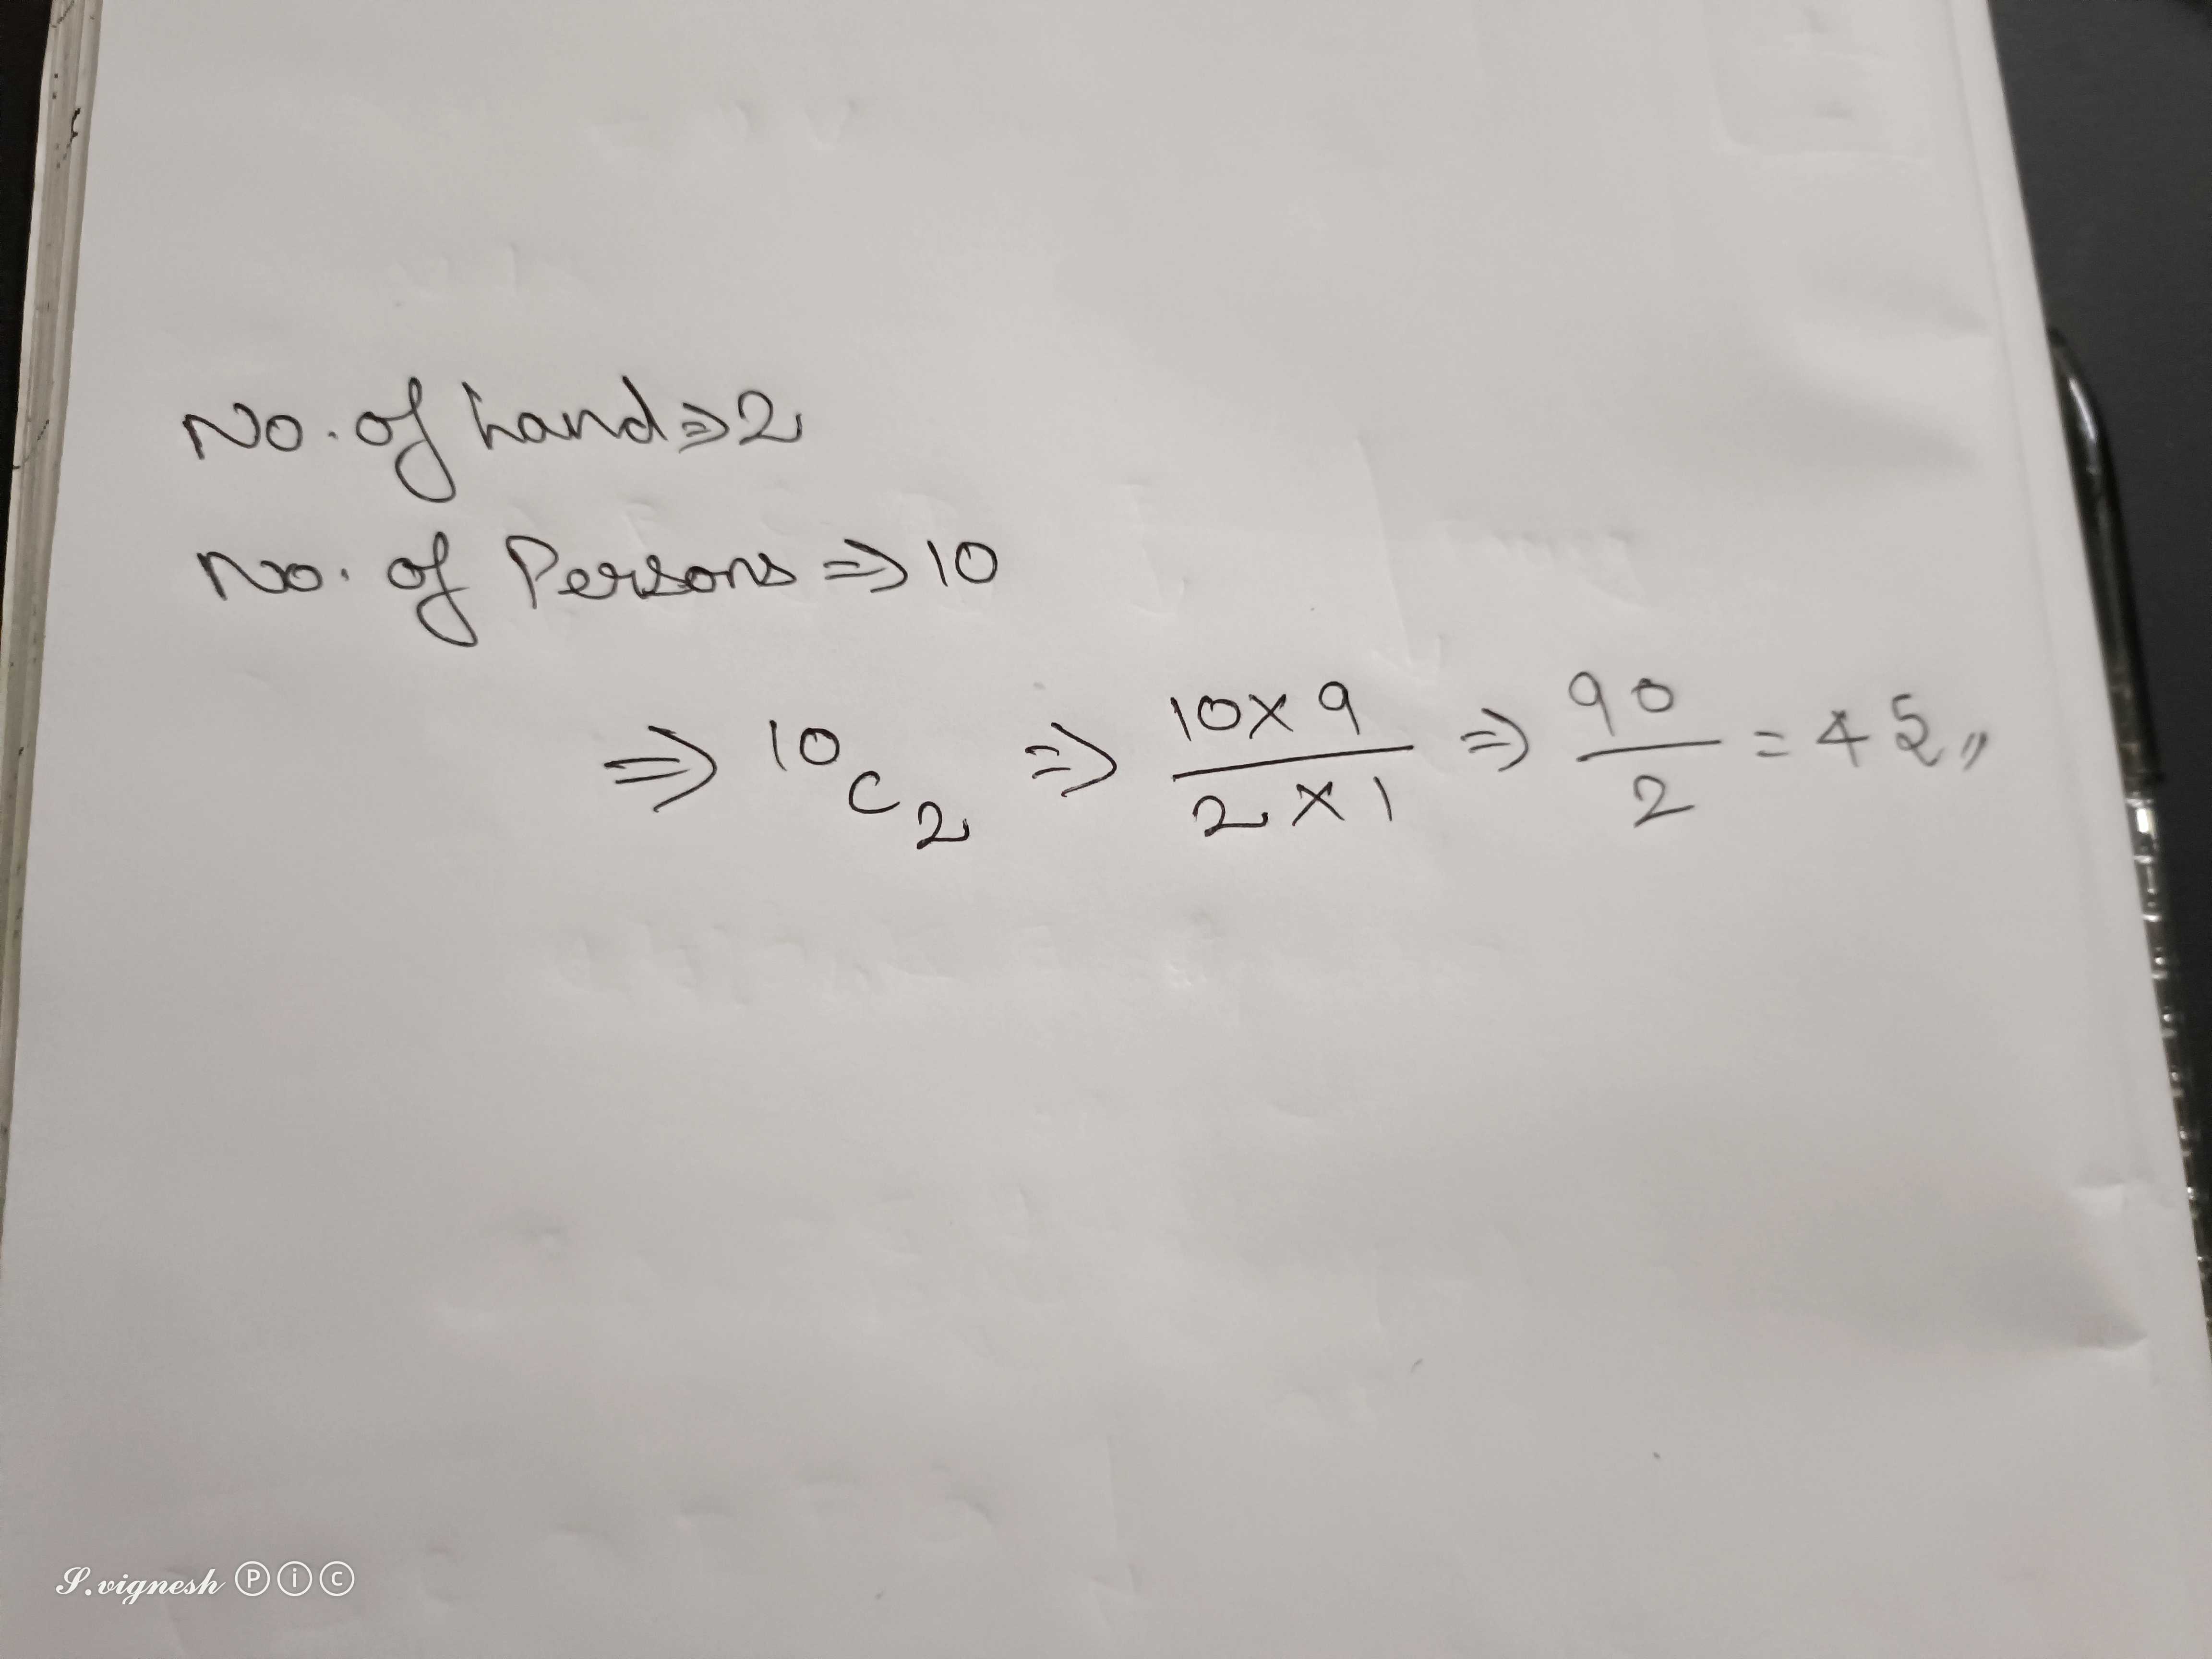 No. of hand ⇒ 2
No. of Persons ⇒ 10
⇒ 10C2 ⇒ 10×9/2×1 ⇒ 90/2 = 45,,
S.vignesh Ⓟⓘⓒ